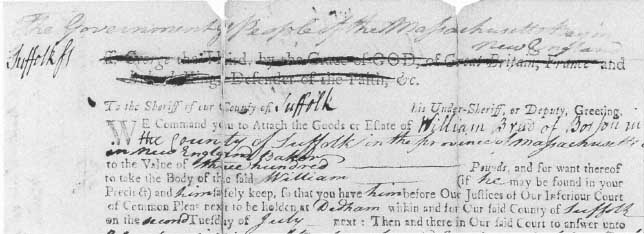 The Government & People of the Massachusetts Bay in
New England
Suffolk ss
ff. George the Third, by the Grace of GOD, of Great Britain, France and
King, Defender of the Faith, &c.
To the Sheriff of our County of Suffolk his Under-Sheriff, or Deputy, Greeting.
WE Command you to Attach the Goods or Estate of William Brud of Boston in
the County of Suffolk in the province of Massachusetts
in New England Baker
to the Value of three hundred Pounds, and for want thereof
to take the Body of the said William (if he may be found in your
Precinct) and him safely keep, so that you have him before Our Justices of Our Inferiour Court
of Common Pleas next to be holden at Dedham within and for Our said County of Suffolk
on the second Tuesday of July next: Then and there in Our said Court to answer unto